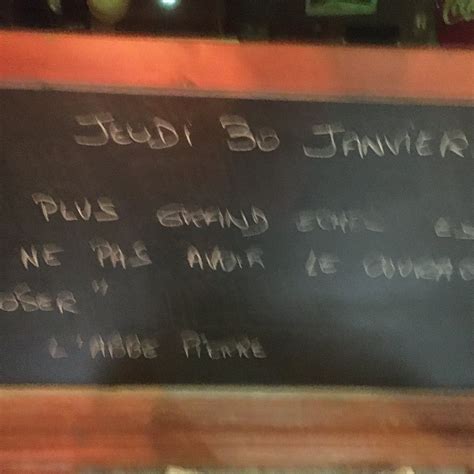 JEUDI 30 JANVIER
PLUS GRAND ECHEC ES
NE PAS AVOIR LE COURAG
OSER"
L'ABBE PIERRE